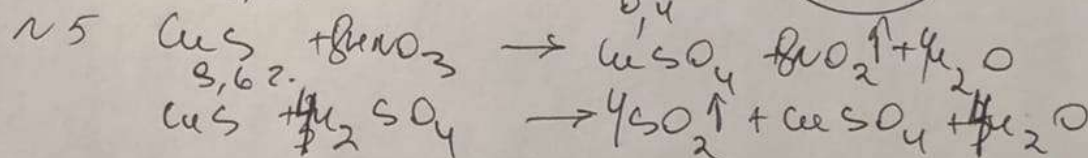 N5 CuS + 8HNO3 → CuSO4 + 8NO2↑ + 4H2O
9,6 г. 0,4
CuS + 4H2SO4 → 4SO2↑ + CuSO4 + 4H2O